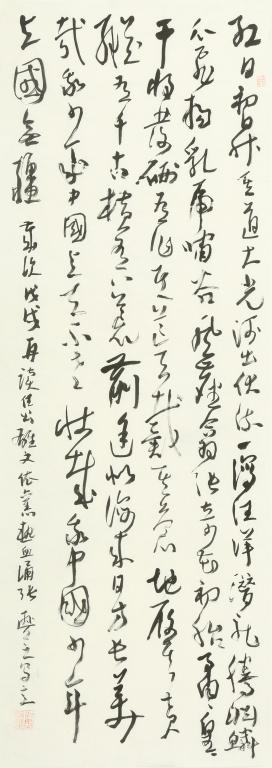 红日初升其道大光河出伏流一泻汪洋潜龙腾渊鳞
爪飞扬乳虎啸谷百兽震惶鹰隼试翼风尘翕张奇花初胎矞矞皇皇
干将发硎有作其芒天戴其苍地履其黄
纵有千古横有八荒前途似海来日方长美
哉我少年中国与天不老壮哉我中国少年
与国无疆 岁次戊戌再读任公雄文依旧热血满张